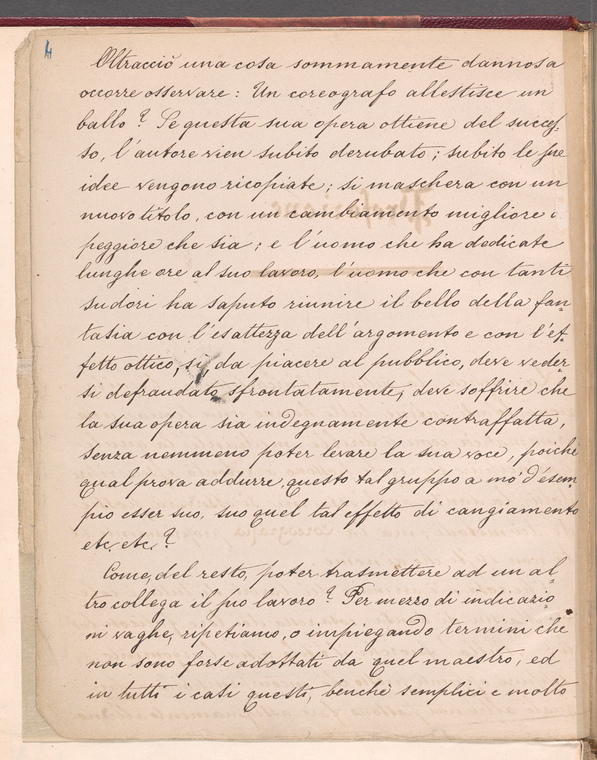 4
Oltracciò una cosa sommamente dannosa
occorre osservare: Un coreografo allestisce un
ballo? Se questa sua opera ottiene del succes-
so, l'autore vien subito derubato; subito le sue
idee vengono ricopiate; si maschera con un
nuovo titolo, con un cambiamento migliore o
peggiore che sia; e l'uomo che ha dedicate
lunghe ore al suo lavoro, l'uomo che con tanti
sudori ha saputo riunire il bello della fan-
tasia con l'esattezza dell'argomento e con l'ef-
fetto ottico, sì, da piacere al pubblico, deve veder
si defraudato sfrontatamente, deve soffrire che
la sua opera sia indegnamente contraffatta,
senza nemmeno poter levare la sua voce, poiche
qual prova addurre, questo tal gruppo a mo' d'esem
pio esser suo, suo quel tal effetto di cangiamento
etc, etc,?
Come, del resto, poter trasmettere ad un al-
tro collega il pro lavoro? Per mezzo di indicazio-
ni vaghe, ripetiamo, o impiegando termini che
non sono forse adottati da quel maestro, ed
in tutti i casi questi, benchè semplici e molto